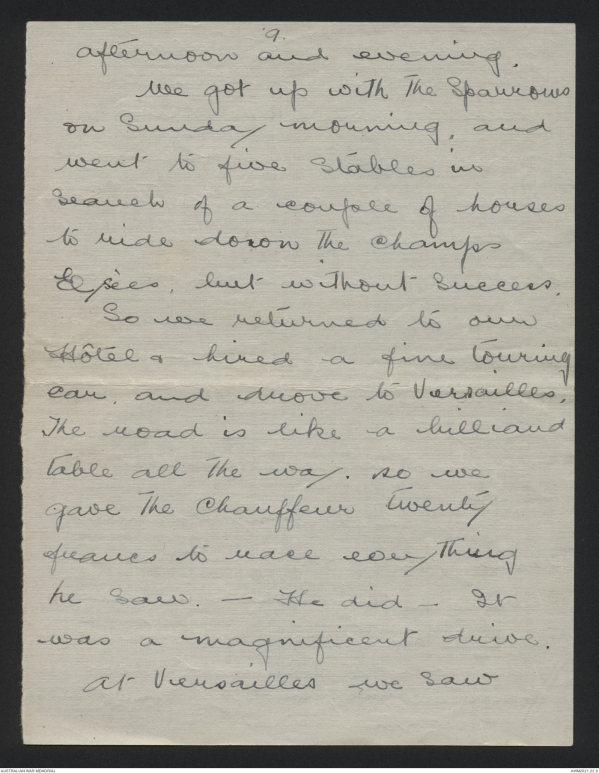 9.
afternoon and evening.
We got up with the Sparrows
on Sunday morning, and
went to five Stables in
Search of a couple of horses
to ride down the Champs
Elysèes, but without Success.
So we returned to our
Hôtel & hired a fine touring
car, and drove to Versailles.
The road is like a billiard
table all the way. so we
gave the Chauffeur twenty
francs to race everything
he Saw. — He did — It
was a magnificent drive.
At Versailles we Saw
AUSTRALIAN WAR MEMORIAL